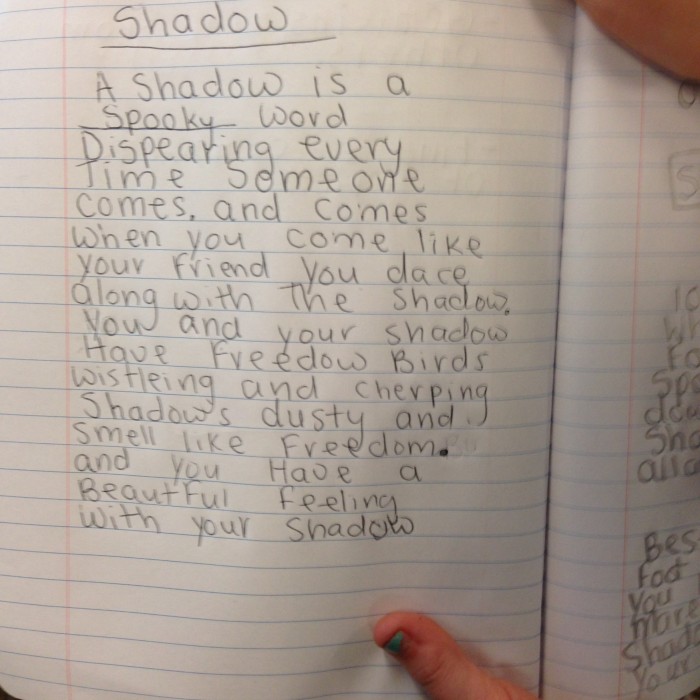 Shadow
A Shadow is a
Spooky word
Dispearing every
Time Someone
comes. and comes
when you come like
your friend you dace
along with The Shadow.
You and your shadow
Have Freedow Birds
wistleing and cherping
Shadow's dusty and
smell like Freedom.
and you Have a
Beautful feeling
with your Shadow
Bes
Foot
you